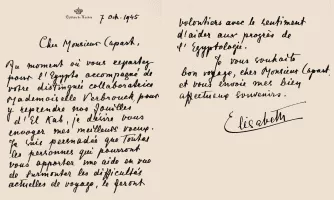 7 Oct. 1945
Cher Monsieur Capart,
Au moment où vous repartez
pour l'Egypte, accompagné de
votre distinguée collaboratrice
Mademoiselle Verbrouck pour
y reprendre nos fouilles
d'El Kab, je désire vous
envoyer mes meilleurs voeux.
Je suis persuadée que toutes
les personnes qui pourront
vous apporter une aide en vue
de surmonter les difficultés
actuelles de voyage, le feront
volontiers avec le sentiment
d'aider aux progrès de
l'Egyptologie.
Je vous souhaite
bon voyage, cher Monsieur Capart,
et vous envoie mes bien
affectueux souvenirs.
Elisabeth